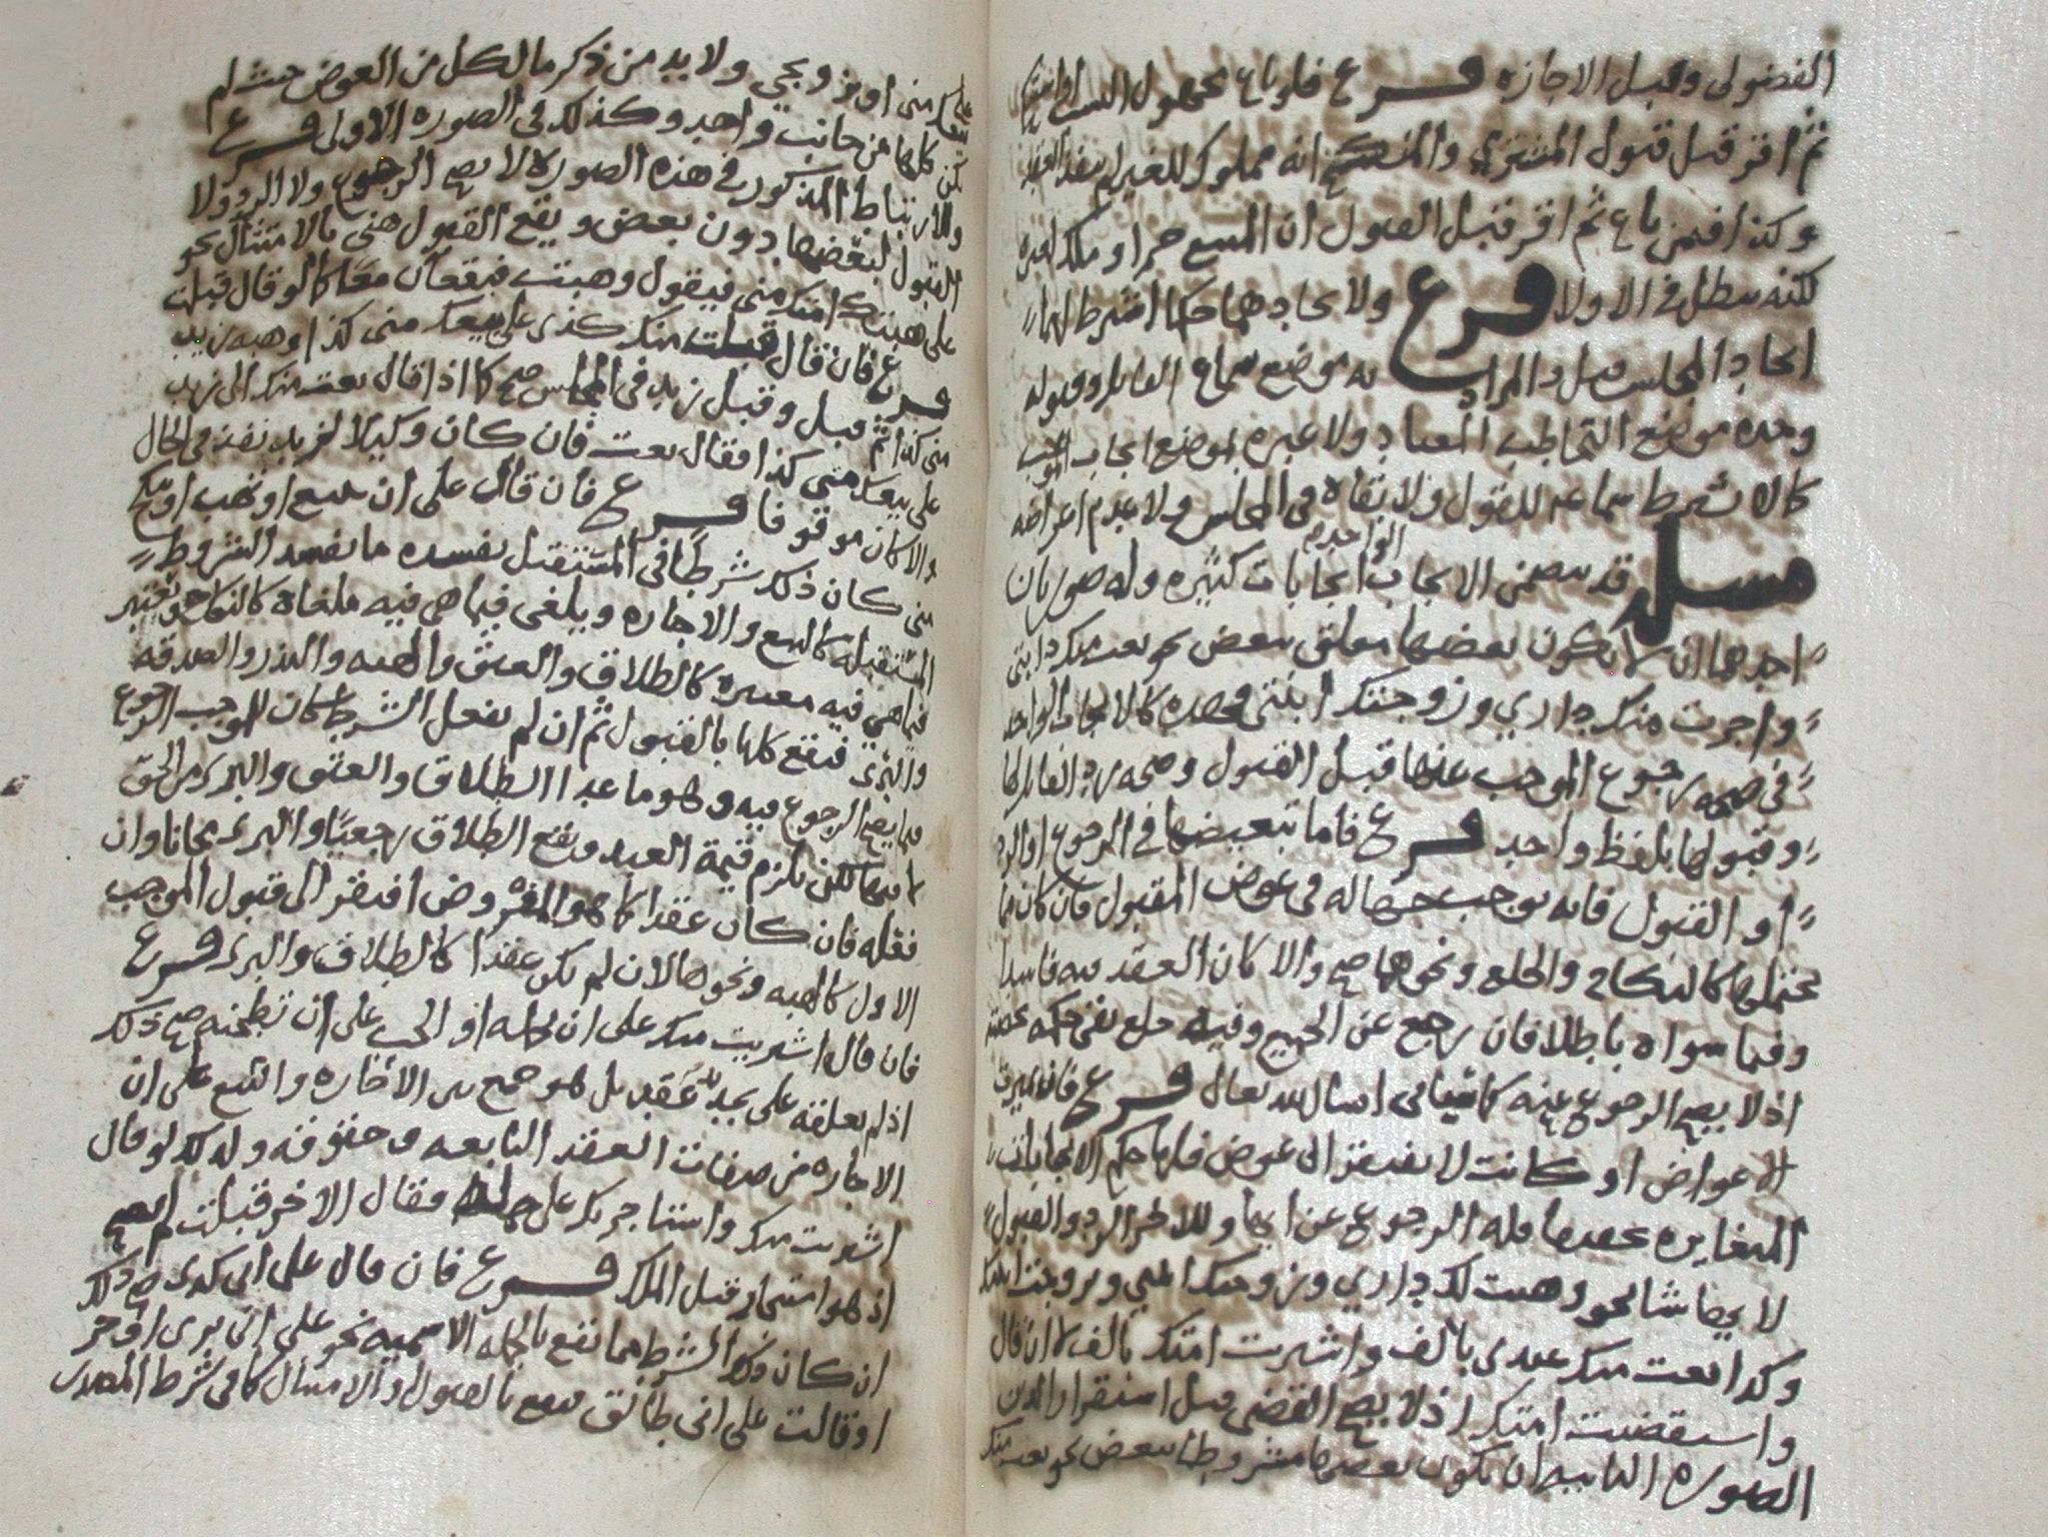 الفضولي وقبل الاجازه فرع فلو باع مجهول النسب او اشترا
ثم اقر قبل قبول المشتري والمنكح انه مملوك للغير لم ينفذ العقد
وكذا فيمن باع ثم اقر قبل القبول ان المبيع حرا او ملك لغيره
لكنه يبطل في الاولا فرع ولا يحاد بهما حكما اشرط لهما
اتحاد المجلس قبل والمراد به موضع سماع القابل وقبوله
وحده موضع التخاطب المعتاد ولا عبره بموضع ايجاب الموجب
كالا شرط سماعه للقبول ولا بقاه في المجلس ولا عدم اعراضه
مسله قد يتضمن الايجاب الواحد ايجابات كثيره وله صورتان
احدهما ان لا يكون بعضها معلق ببعض نحو بعت منك دابتي
واجرت منك داري وزوجتك ابنتي فهذه كالايجاب الواحد
في صحه رجوع الموجب عنها قبل القبول وصحه رد القابل لها
وقبولها بلفظ واحد فرع فاما تبعيضها في الرجوع او الرد
او القبول فانه يوجب جهاله في عوض المقبول فان كان مما
يحتملها كالنكاح والخلع ونحوهما صح والا كان العقد فيه فاسدا
وفيما سواه باطلا فان رجع عن الجميع وفيه خلع بقي حكمه بحصته
اذ لا يصح الرجوع عنه كما سياتي ان شا الله تعالى فرع فان ميزت
الاعواض او كانت لا تفتقر الى عوض فلها حكم الايجابات
المتغايره فله الرجوع عن ايها وللاخر الرد والقبول
لايها شا نحو وهبت لك داري وزوجتك ابنتي وتزوجت ابنتك
وكذا بعت منك عبدي بالف واشتريت امتك بالف لا ان قال
واستقضيت امتك اذ لا يصح القضى قبل استقرار الدين
الصوره الثانيه ان يكون بعضها مشروطا ببعض نحو بعت منك
على منى او نز ويجي ولا بد من ذكر ما لكل من العوض حيث لم
تكن كلها من جانب واحد وكذلك في الصوره الاولى فرع
والارتباط المذكور في هذه الصوره لا يصح الرجوع ولا الرد ولا
القبول لبعضها دون بعض ويقع القبول هنى بالامتثال نحو
على هبتك امتك منى فيقول وهبت فيقعان معا كما لو قال قبلت
فرع فان قال قبلت منك كذى على بيعك منى كذا او هبه زيد
منى كذا ثم قبل وقبل زيد في المجلس صح كما اذا قال بعت منك الى زيد
على بيعك منى كذا فقال بعت فان كان وكيلا لزيد نفذ في الحال
والا كان موقوفا فرع فان قال على ان تبيع او تهب او تنكح
منى كان ذلك شرطا في المستقبل يفسده ما يفسد الشروط
المستقبله كالبيع والاجاره ويلغى فيما هي فيه ملغاه كالنكاح ويعتبر
فيما هي فيه معتبره كالطلاق والعتق والهبه والنذر والصدقه
والبرى فيقع كلها بالقبول ثم ان لم يفعل الشرط كان للموجب الرجوع
فيما يصح الرجوع فيه وهو ما عدا الطلاق والعتق والبرى من الحق
لا فيها لكن يلزم قيمة العبد ويقع الطلاق رجعيا والبرى مجانا وان
فعله فان كان عقدا كما هو المفروض افتقر الى قبول الموجب
الاول كالهبه ونحوها لا ان لم يكن عقدا كالطلاق والبرى فرع
فان قال اشتريت منك على ان تحمله او الحب على ان تطحنه صح ذلك
اذ لم يعلقه على تجديد عقد بل هو جمع بين الاجاره والبيع على ان
الاجاره من صفات العقد التابعه وحقوقه ولذلك لو قال
اشتريت منك واستاجرتك على حمله فقال الاخر قبلت لم يصح
اذ هو استيجار قبل الملك فرع فان قال على انى كذى صح ذلك
ان كان ذلك الشرط مما تقع بالجمله الاسميه نحو على انى برى او حر
او قالت على انى طالق فيقع بالقبول والامتثال كما في شرط المصدر